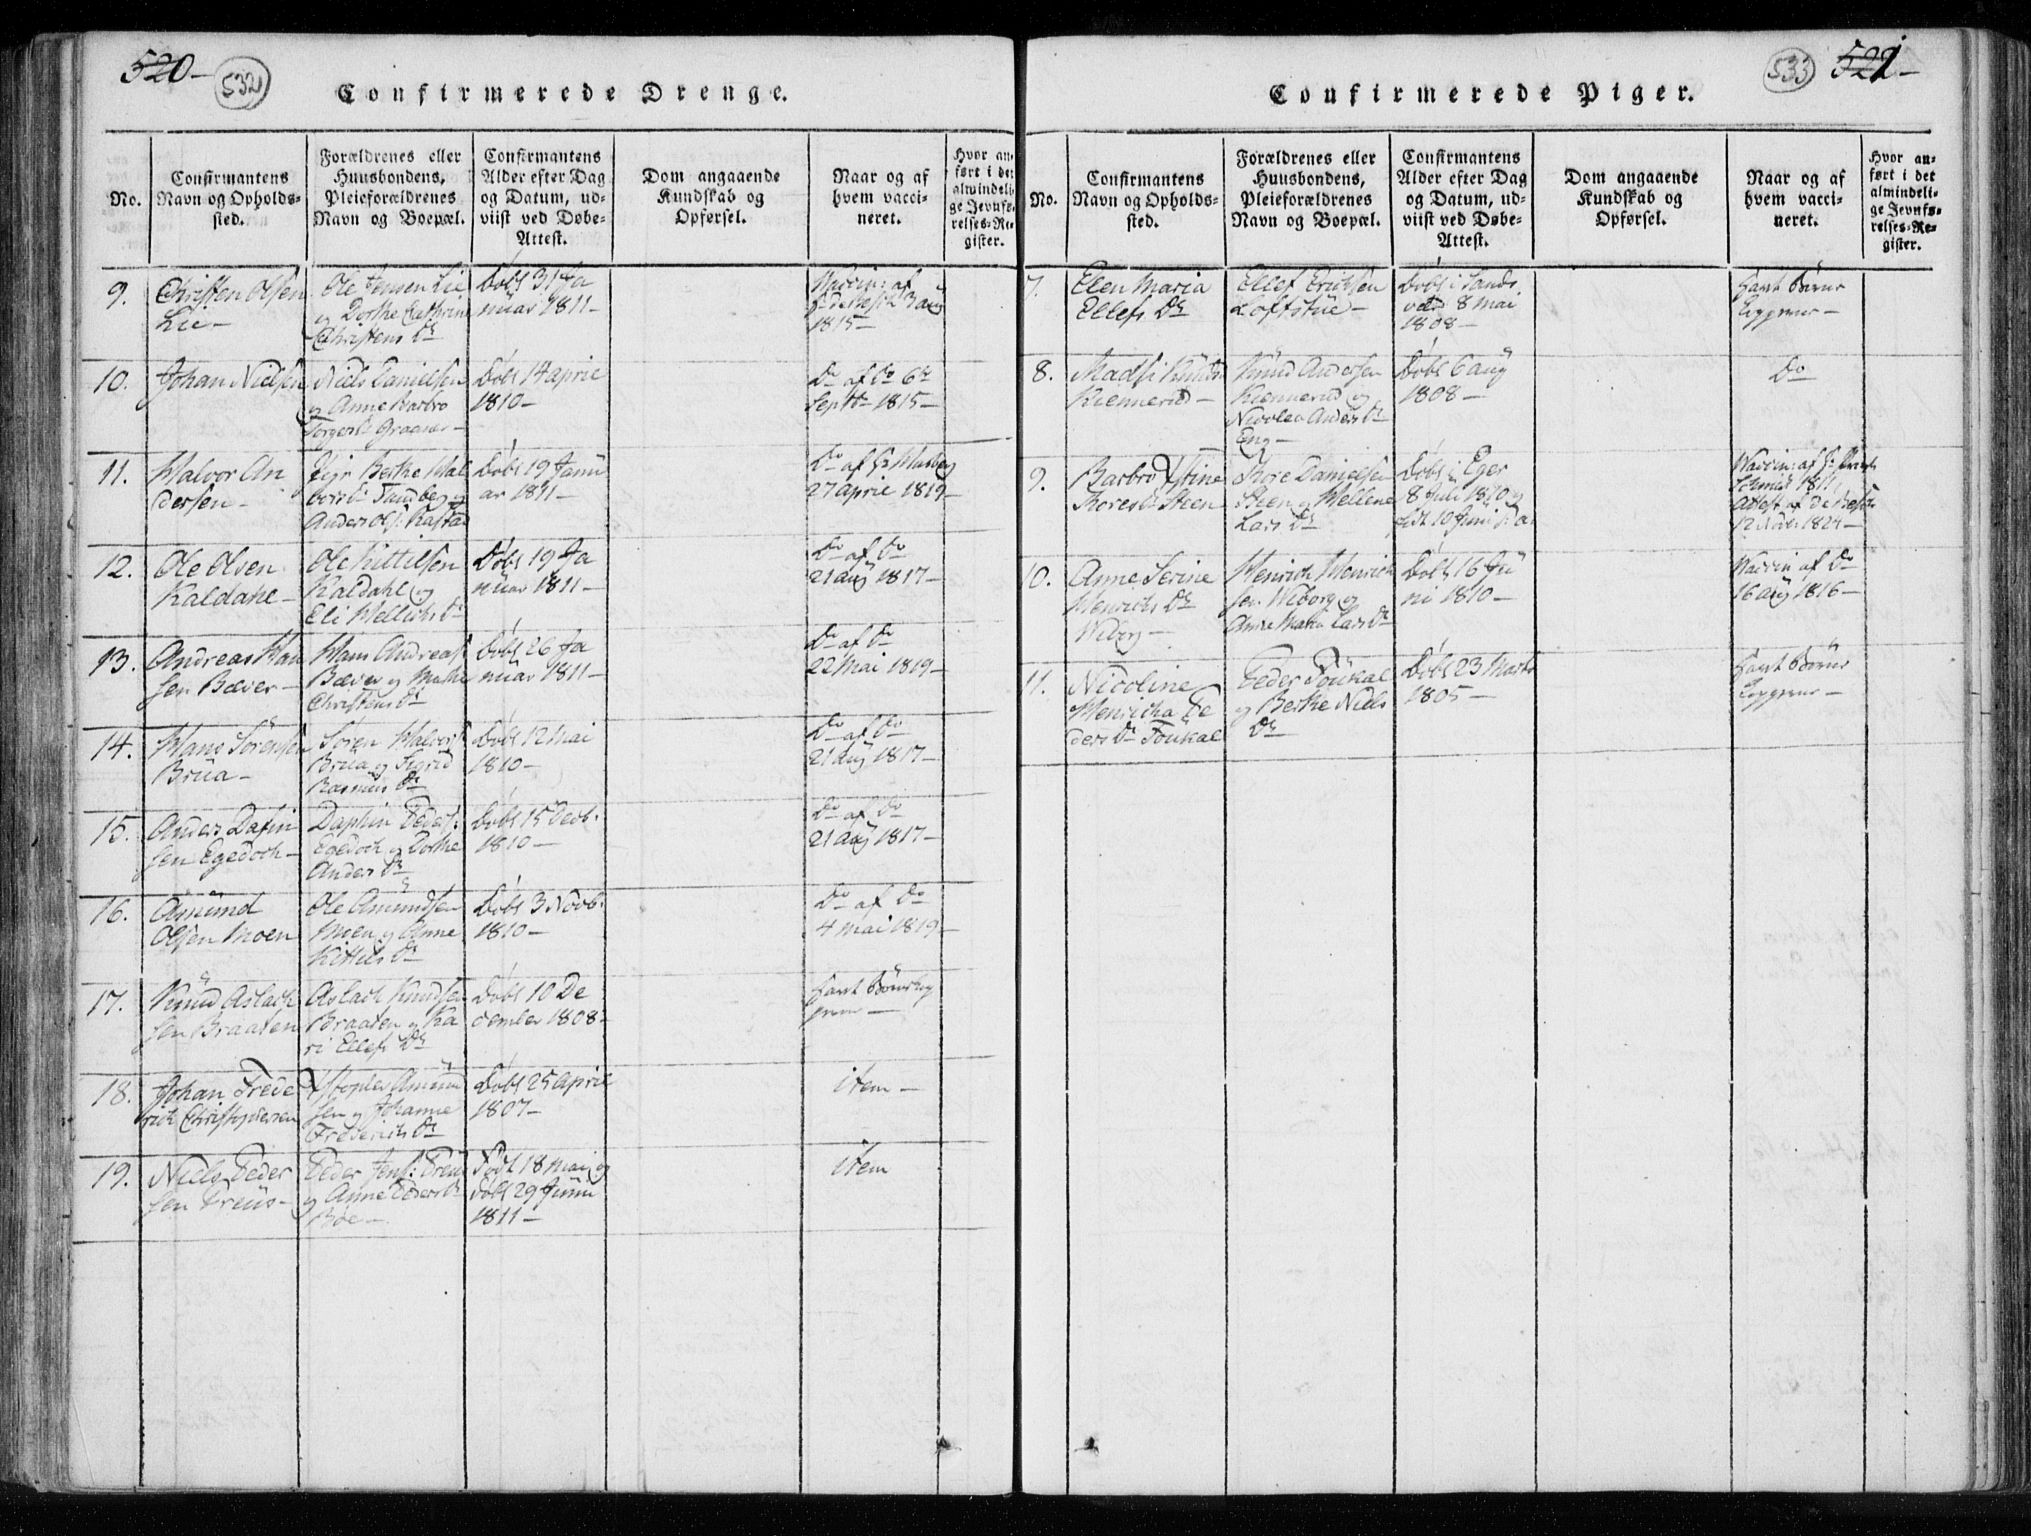 520-
532
Confirmerede Drenge.
No.
Confirmantens
Navn og Opholds-
sted.
Forældrenes eller
Huusbondens,
Pleieforældrenes
Navn og Boepæl.
Confirmantens
Alder efter Dag
og Datum, ud-
viist ved Døbe-
Attest.
Dom angaaende
Kundskab og
Opførsel.
Naar og af
hvem vacci-
neret.
Hvor an-
ført i det
almindeli-
ge Jevnfø-
relses-Re-
gister.
9.
Christen Olsen
Lie-
Ole Jensen Lie
og Dorthe Cathrine
Christens Dr
Døbt 31 Ja
nuar 1811-
Waccin: af
3 aug
1815-
10.
Johan Nielsen
Niels Danielsen
og Anne Barbro
Døbt 14 april
1810-
Do af Do 6te
Septbr 1815-
11.
Halvor An
dersen-
Pige Berthe Hal
og
Anders Ols:
Døbt 19 Janu
ar 1811-
Do af
27 april 1819-
12.
Ole Olsen
Kaldahl-
Ole Kittilsen
Kaldahl og
Eli
Døbt 19 Ja
nuar 1811-
Do af Do
21 aug 1817-
13.
Andreas Han
sen Bæver-
Hans Andreas
Bæver og
Christens Dr
Døbt 26 Ja
nuar 1811-
Do af Do
22 Mai 1819-
14.
Hans Sörensen
Brua-
Sören Halvors
Brua og Sigrid
Rasmus Dr
Døbt 12 Mai
1810-
Do af Do
21 aug 1817-
15.
Anders Dafin
sen Egedoch-
Daphin Peders:
Egedoch og Dorthe
Anders Dr
Døbt 15 Decb.
1810-
Do af Do
21 aug 1817-
16.
Amund
Olsen Moen
Ole Amundsen
Moen og Anne
Kittils Dr
Døbt 3 Novb.
1810-
Do af Do
4 Mai 1819-
17.
Knud Aslach
sen Braaten
Aslach Knudsen
Braaten og Ka
ri Ellefs Dr
Døbt 10 De
cember 1808-
havt Børnekop
18.
Johan Frede
rich Christophersen
Xstopher Amun
sen og Johanne
Frederichs Dr
Døbt 25 april
1807-
item-
19.
Niels Peder
sen Preüs-
Peder Jens: Preüs
og Anne Peders Dr
Böe-
Født 18 Mai og
Døbt 29 Juni
1811-
item
533
521-
Confirmerede Piger.
No.
Confirmantens
Navn og Opholds-
sted.
Forældrenes eller
Huusbondens,
Pleieforældrenes
Navn og Boepæl.
Confirmantens
Alder efter Dag
og Datum, ud-
viist ved Døbe-
Attest.
Dom angaaende
Kundskab og
Opførsel.
Naar og af
hvem vacci-
neret.
Hvor an-
ført i det
almindeli-
ge Jevnfø-
relses-Re-
gister.
7.
Elen Maria
Ellefs Dr
Ellef Erichsen
Loftstue-
Døbt i Sands
8 Mai
1808-
havt Børne
kopperne-
8.
Madsi Knuds
Kiennerud-
Knud Andersen
Kiennerud og
Nicolea Anders Dr
Eng-
Døbt 6 aug
1808-
Do
9.
Barbro Xstine
Thores Dr Steen
Thore Danielsen
Steen og Mellene
Lars Dr
Døbt i Eger
8 Juli 1810 og
født 10 Juni s: a:
Waccin: af
Schmidt 1811
Attest af
12 Novb: 1824-
10.
Anne Serine
Henrichs Dr
Wiborg-
Henrich Henrich
sen Wiborg og
Anne Maria Lars Dr
Døbt 16 Ju
ni 1810-
Waccin af Do
16 aug 1816-
11.
Nicoline
Henricha Pe
ders Dr Foukal
Peder Foukal
og Berthe Niels
Dr
Døbt 23 Marts
1805-
havt Børne
kopperne-